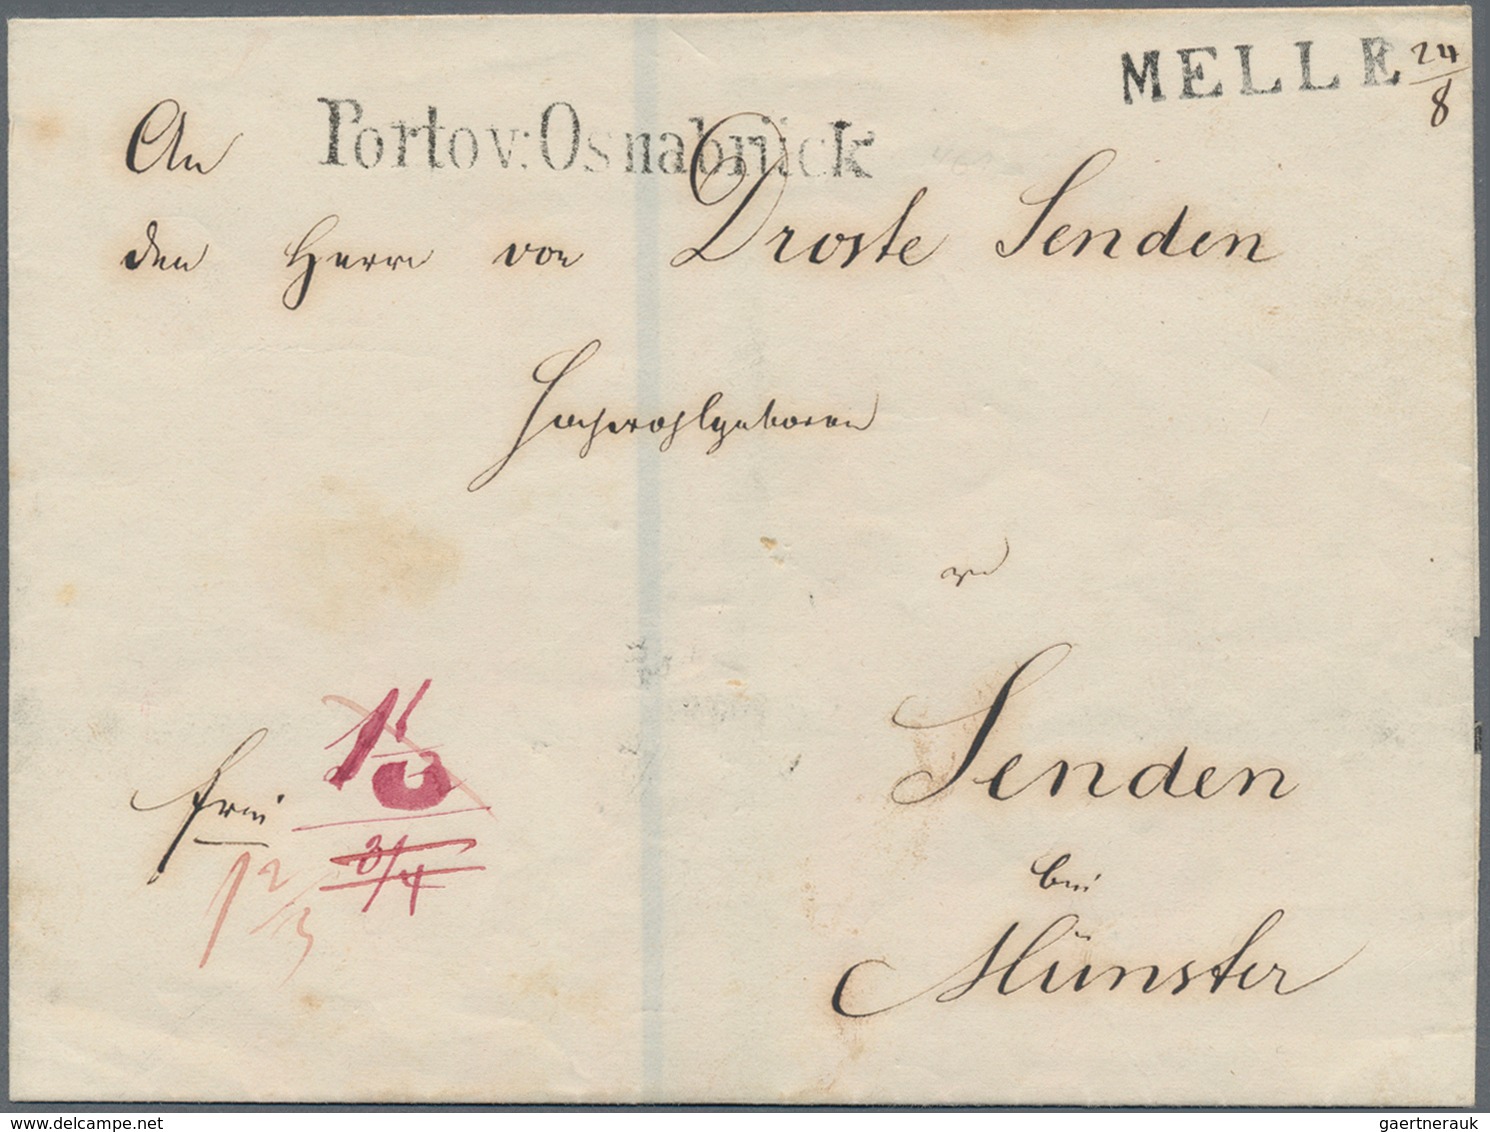 MELLE 24/8
Porto v: Osnabrück
An
den Herrn von Droste Senden
Hochwohlgeboren
zu
Senden
bei
Münster
frei
3/4
1 2/3
delcampe.net
gaertnerauk